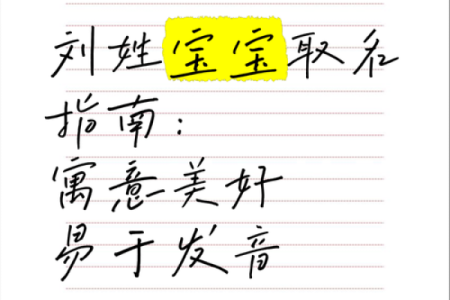 刘姓宝宝取名
指南：
寓意美好
易于发音